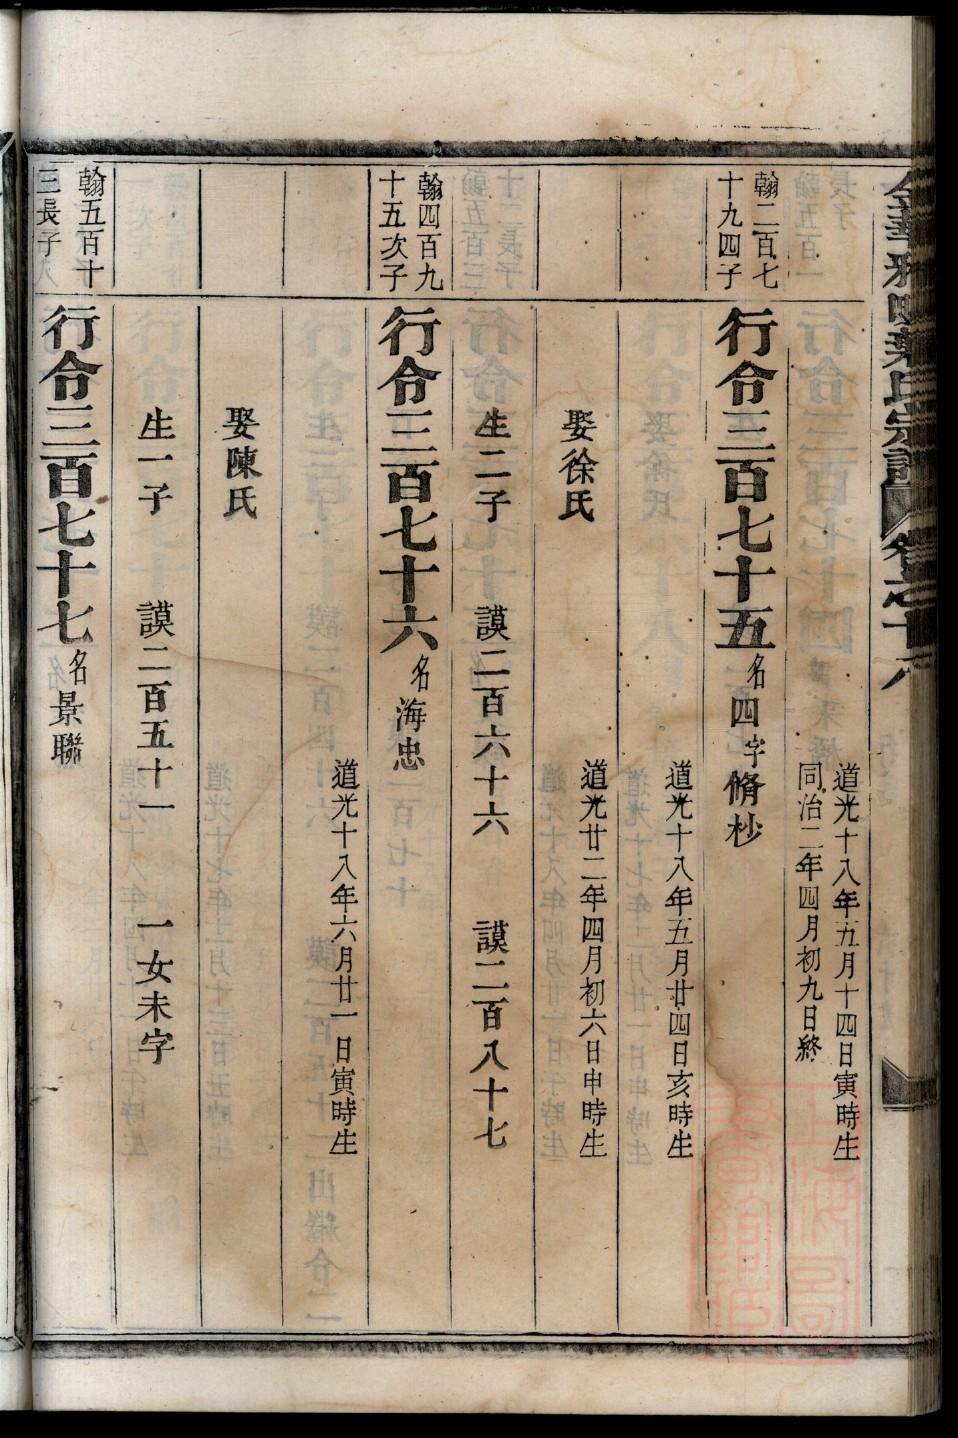 道光十八年五月十四日寅時生
同治二年四月初九日終
翰二百七
十九四子
行令三百七十五名四字脩杪
道光十八年五月廿四日亥時生
娶徐氏
道光廿二年四月初六日申時生
生二子 謨二百六十六 謨二百八十七
翰四百九
十五次子
行令三百七十六名海忠
道光十八年六月廿一日寅時生
娶陳氏
生一子 謨二百五十一 一女未字
翰五百十
三長子
行令三百七十七名景聯